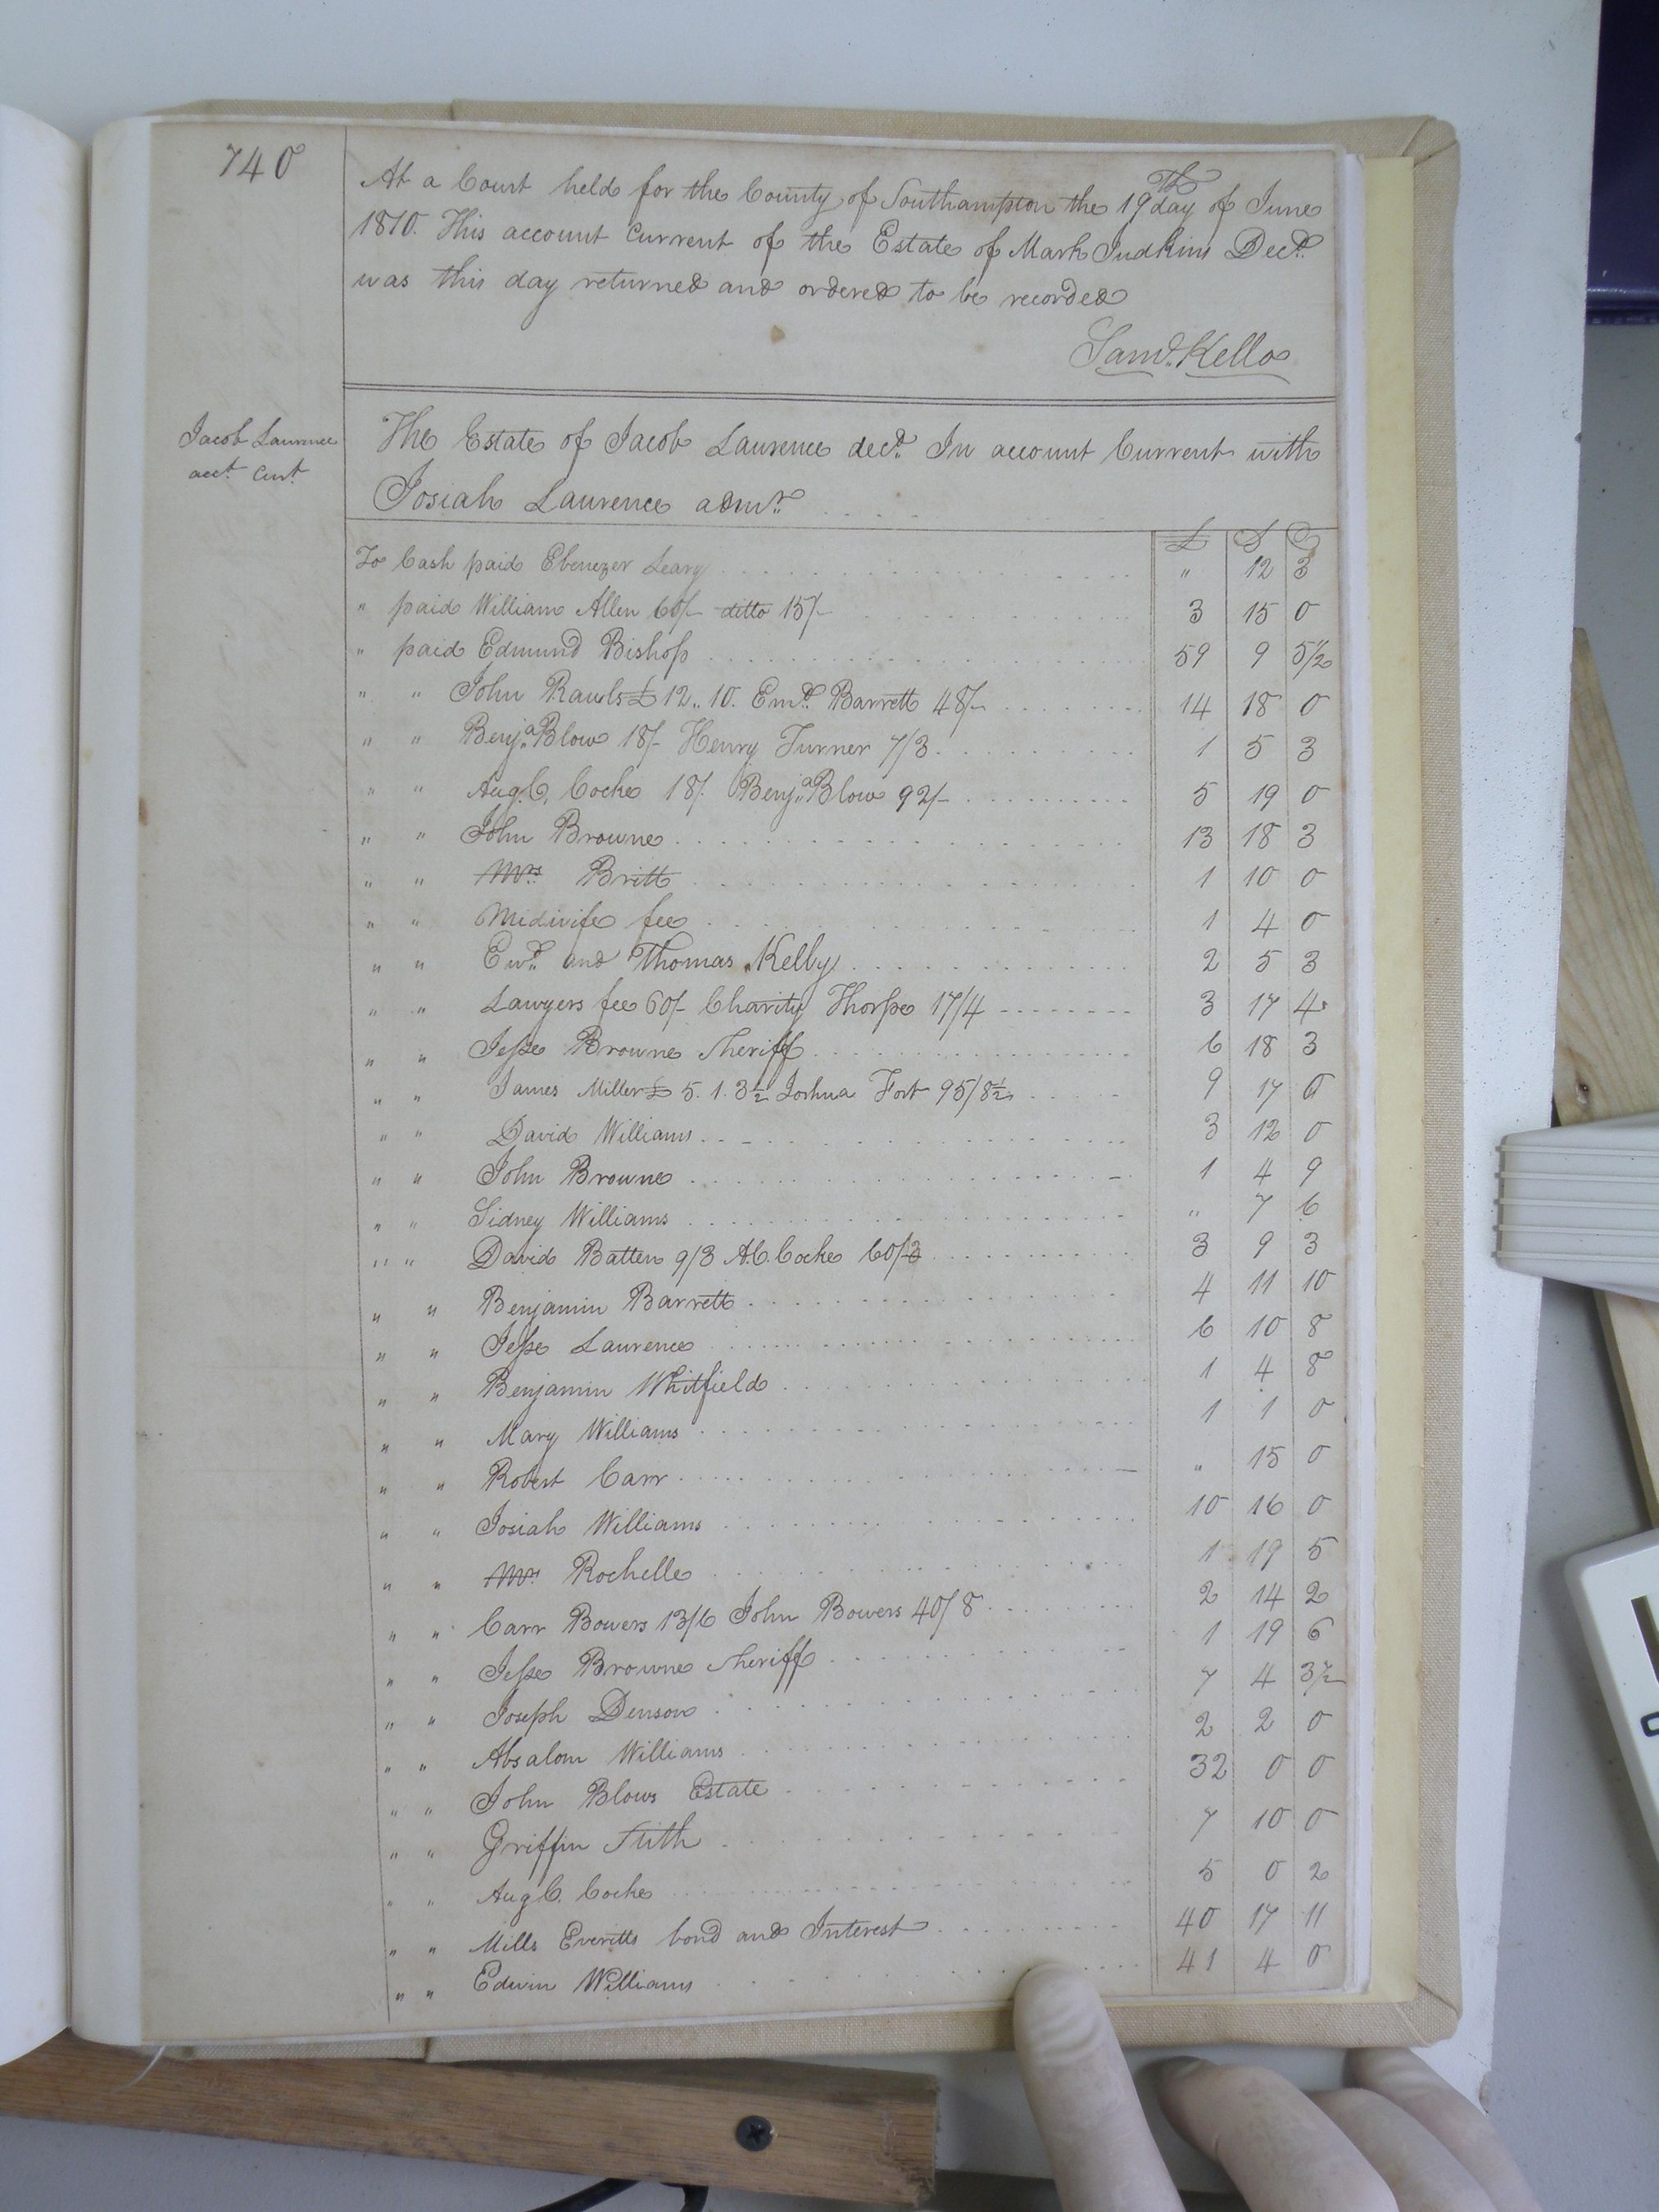 740
At a Court held for the County of Southampton the 19th day of June
1810. This account Current of the Estate of Mark Judkins Decd.
was this day returned and ordered to be recorded
Saml. Kello
Jacob Laurence
acct. Curt.
The Estate of Jacob Laurence decd. In account Current with
Josiah Laurence admr.
£ S D
To Cash paid Ebenezer Leary " 12 3
" paid William Allen 60/- ditto 15/- 3 15 0
" paid Edmund Bishop 59 9 5 1/2
" " John Rawls £ 12.. 10. Emd. Barrett 48/- 14 18 0
" " Benja. Blow 18/- Henry Turner 7/3 1 5 3
" " Aug. C. Cocke 18/. Benja. Blow 92/- 5 19 0
" " John Browne 13 18 3
" " Mrs. Britt 1 10 0
" " Midwife fee 1 4 0
" " Ewd. and Thomas Kelby 2 5 3
" " Lawyers fee 60/- Charity Thorpe 17/4 3 17 4
" " Jesse Browne Sheriff 6 18 3
" " James Miller £ 5. 1. 3 1/2 Joshua Fort 95/8 1/2 9 17 0
" " David Williams 3 12 0
" " John Browne 1 4 9
" " Sidney Williams " 7 6
" " David Batten 9/3 A.C. Cocke 60/ 3 9 3
" " Benjamin Barrett 4 11 10
" " Jesse Laurence 6 10 8
" " Benjamin Whitfield 1 4 8
" " Mary Williams 1 1 0
" " Robert Carr " 15 0
" " Josiah Williams 10 16 0
" " Mrs. Rochelle 1 19 5
" " Carr Bowers 13/6 John Bowers 40/8 2 14 2
" " Jesse Browne Sheriff 1 19 6
" " Joseph Denson 7 4 3 1/2
" " Absalom Williams 2 2 0
" " John Blows Estate 32 0 0
" " Griffin Stith 7 10 0
" " Aug C. Cocke 5 0 2
" " Mills Everitts bond and Interest 40 17 11
" " Edwin Williams 41 4 0